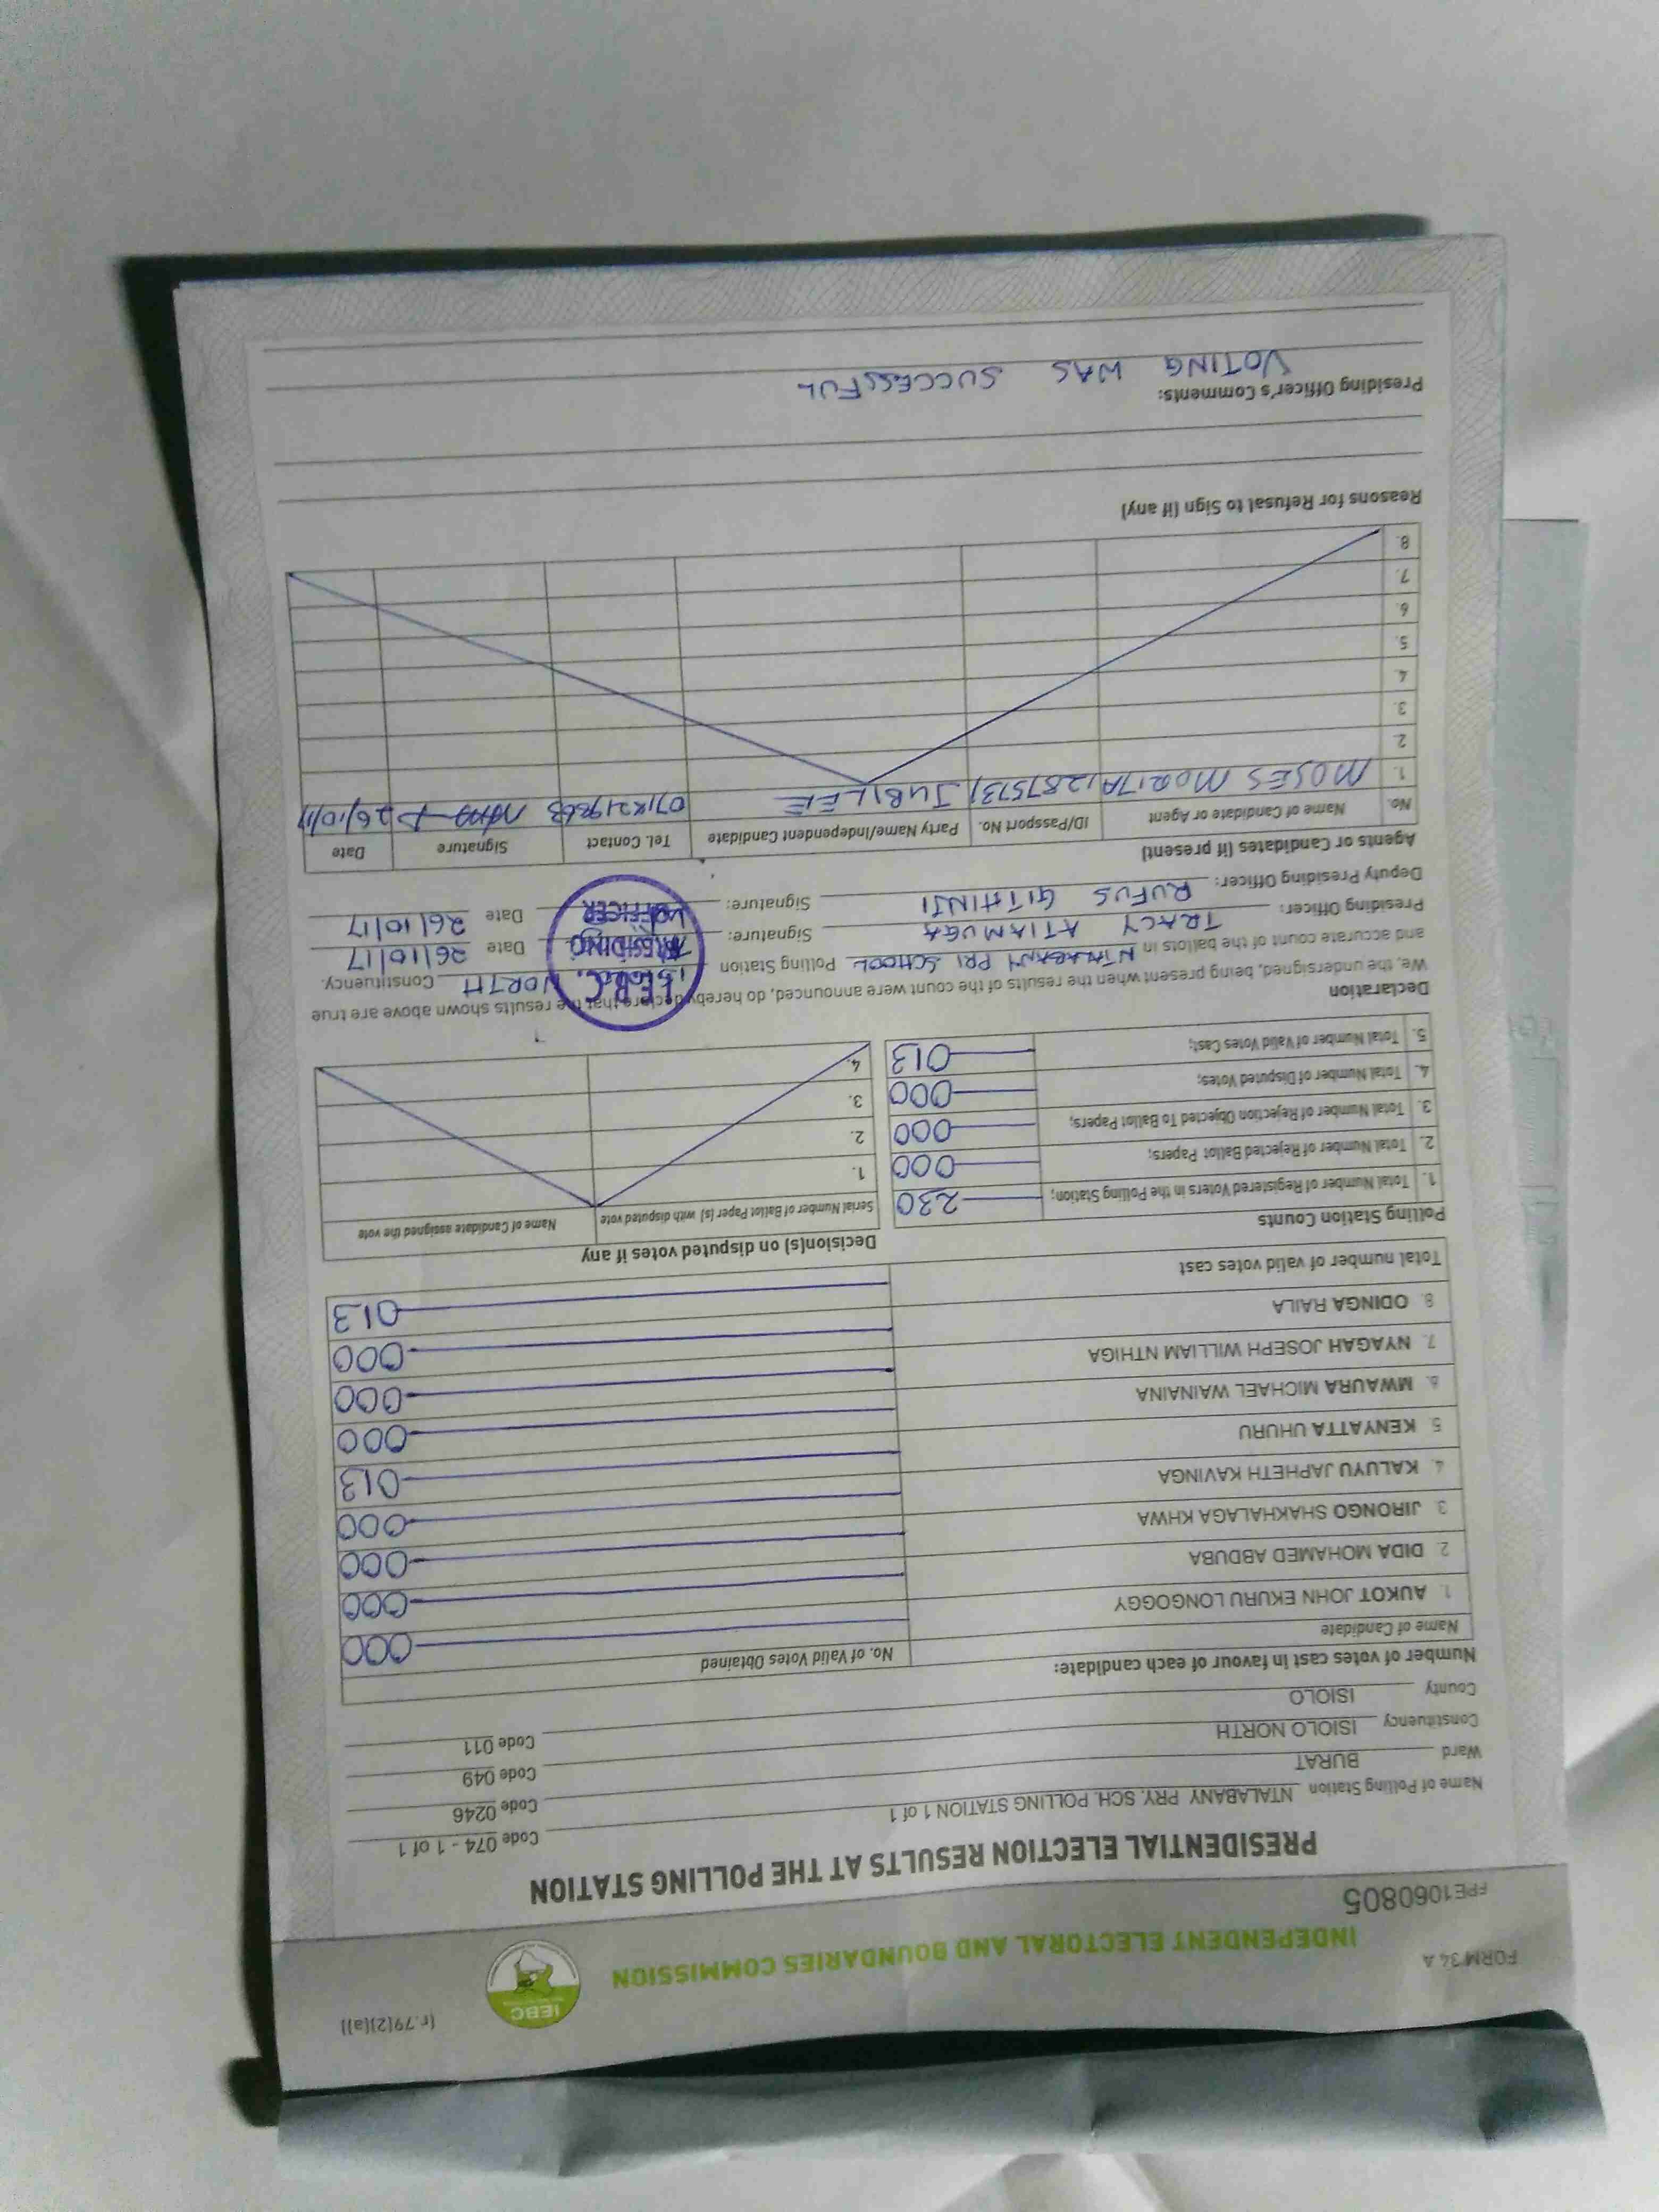 FORM 34 A
(r.79(2)(a))
INDEPENDENT ELECTORAL AND BOUNDARIES COMMISSION
IEBC
FPE1060805
PRESIDENTIAL ELECTION RESULTS AT THE POLLING STATION
Name of Polling Station NTALABANY PRY. SCH. POLLING STATION 1 of 1 Code 074 - 1 of 1
Ward BURAT Code 0246
Constituency ISIOLO NORTH Code 049
County ISIOLO Code 011
Number of votes cast in favour of each candidate:
Name of Candidate No. of Valid Votes Obtained
1. AUKOT JOHN EKURU LONGOGGY 000
2. DIDA MOHAMED ABDUBA 000
3. JIRONGO SHAKHALAGA KHWA 000
4. KALUYU JAPHETH KAVINGA 000
5. KENYATTA UHURU 013
6. MWAURA MICHAEL WAINAINA 000
7. NYAGAH JOSEPH WILLIAM NTHIGA 000
8. ODINGA RAILA 000
Total number of valid votes cast 013
Polling Station Counts
1. Total Number of Registered Voters in the Polling Station; 230
2. Total Number of Rejected Ballot Papers; 000
3. Total Number of Rejection Objected To Ballot Papers; 000
4. Total Number of Disputed Votes; 000
5. Total Number of Valid Votes Cast; 013
Decision(s) on disputed votes if any
Serial Number of Ballot Paper (s) with disputed vote Name of Candidate assigned the vote
1.
2.
3.
4.
Declaration
We, the undersigned, being present when the results of the count were announced, do hereby declare that the results shown above are true
and accurate count of the ballots in PRI SCHOOL Polling Station NORTH Constituency.
Presiding Officer: TRACY ATIAMUGA Signature: Date 26/10/17
Deputy Presiding Officer: RUFUS GITHINJI Signature: Date 26/10/17
I.E.B.C.
PRESIDING
OFFICER
Agents or Candidates (if present)
No. Name of Candidate or Agent ID/Passport No. Party Name/Independent Candidate Tel. Contact Signature Date
1. MOSES JUBILEE 26/10/17
2.
3.
4.
5.
6.
7.
8.
Reasons for Refusal to Sign (if any)
Presiding Officer's Comments:
VOTING WAS SUCCESSFUL